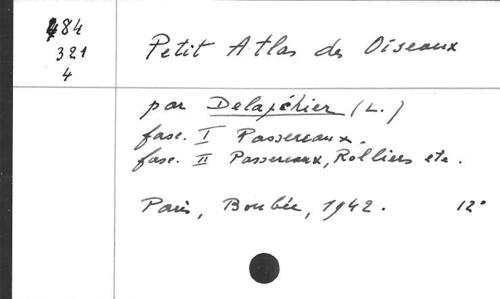 484
321
4
Petit Atlas des Oiseaux
par Delapchier (L.)
fasc. I Passereaux.
fasc. II Passereaux, Rolliers etc.
Paris, Boubée, 1942. 12°